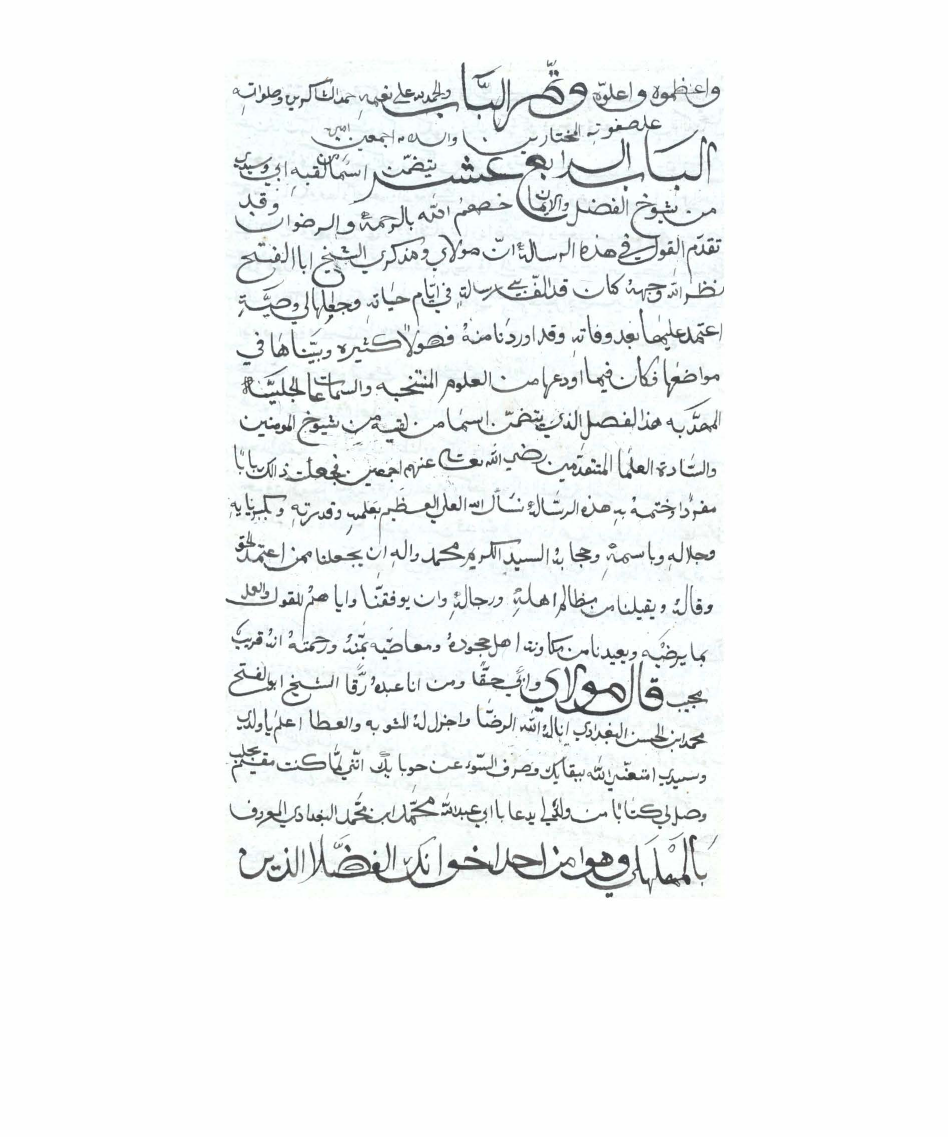 واعظموه واعلوه وتم الباب والحمد لله على نعمه حمد الشاكرين وصلواته
على صفوته المختارين والسلام اجمعين امين
الباب الرابع عشر يتضمن اسما من لقيه ابي وسيدي
من شيوخ الفضل والايمان خصهم الله بالرحمة والرضوان وقد
تقدم القول في هذه الرسالة ان مولاي ومذكري الشيخ ابا الفتح
نظر الله وجهه كان قد الف لي رسالة في ايام حياته وجعلها لي وصية
اعتمد عليها بعد وفاته وقد اوردنا منه فصولا كثيره وبيناها في
مواضعها فكان فيما اودعها من العلوم المنتخبه والسماعات الجلية
المهذبه هذا الفصل الذي يتضمن اسما من لقيه من شيوخ المومنين
والسادة العلما المتقدمين رضي الله تعالى عنهم اجمعين فجعلت ذالك بابا
مفردا وختمة به هذه الرسالة نسأل الله العلي العظيم بعلمه وقدرته وكبريايه
وجلاله وباسمه وحجابه السيد الكريم محمد واله ان يجعلنا ممن اعتمد الحق
وقاله ويقيلنا من مظالم اهله ورجاله وان يوفقنا واياهم للقول والعمل
بما يرضيه ويعيدنا من مكاونة اهل جحوده ومعاصيه بمنه ورحمته انه قريب
مجيب قال مولاي وابي حقا ومن انا عبده رقا الشيخ ابو الفتح
محمد ابن الحسن البغدادي اناله الله الرضا واجزل له المثوبه والعطا اعلم ياولدي
وسيدي امتعني الله ببقايك وصرف السوء عن حوبايك انني لما كنت مقيم بحلب
وصل لي كتابا من ولد لي يدعا بابي عبد الله محمد ابن محمد البغدادي المعروف
بالمهلهلي وهو من احد اخوانك الفضلا الذين